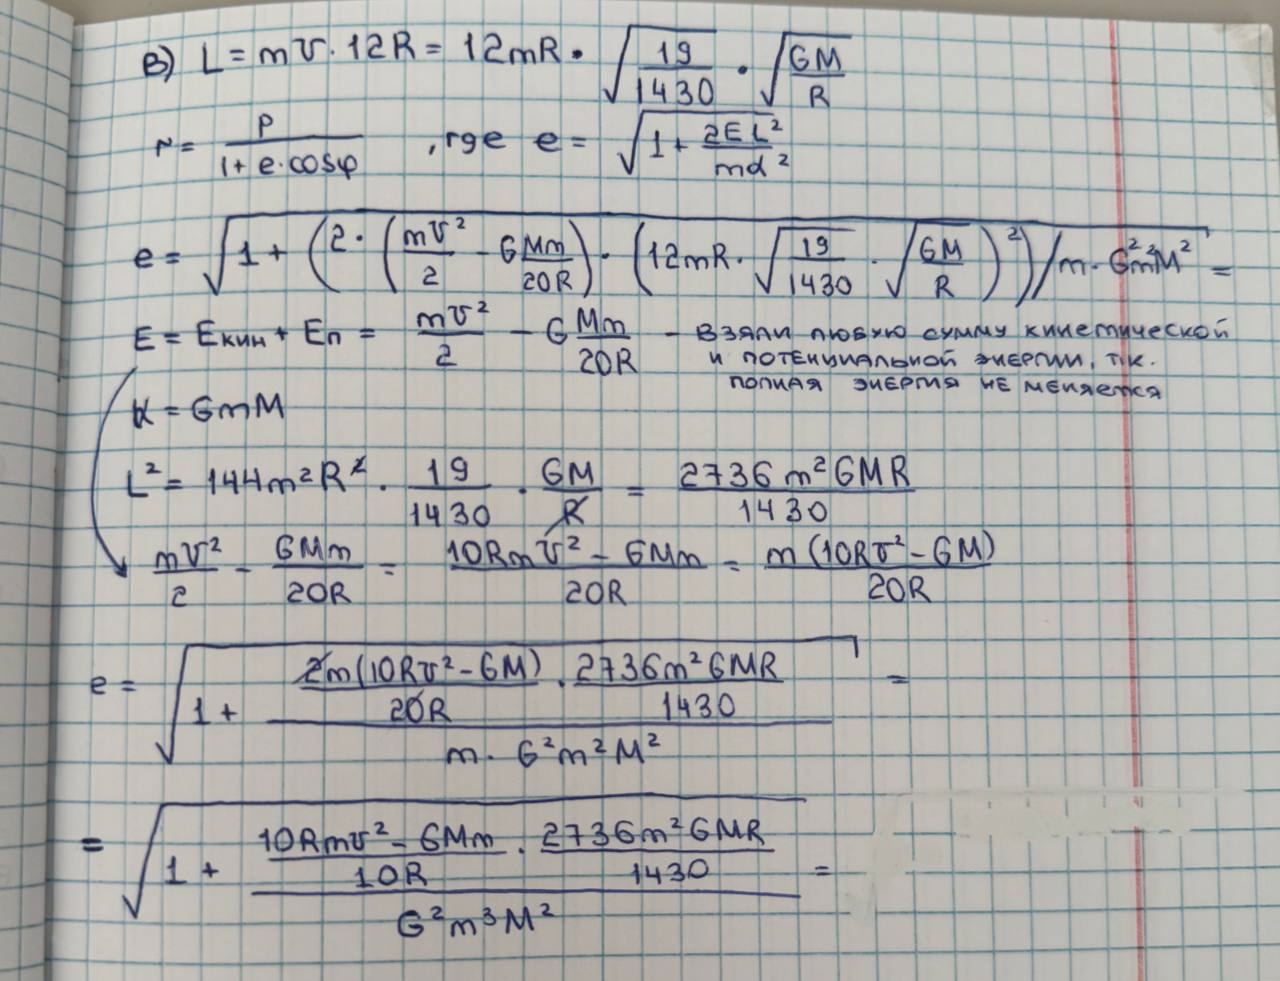 в) L = mv · 12R = 12mR · √(19/1430) · √(GM/R)
r = p/(1 + e·cosφ) , где e = √(1 + 2EL²/(mα²))
e = √(1 + (2·(mv²/2 − G Mm/20R) · (12mR · √(19/1430) · √(GM/R))²)/m · G²m²M²) =
E = Eкин + Eп = mv²/2 − G Mm/20R – взяли любую сумму кинетической
и потенциальной энергии, т.к.
полная энергия не меняется
α = GmM
L² = 144m²R² · 19/1430 · GM/R = 2736 m²GMR/1430
mv²/2 − GMm/20R = (10Rmv² − GMm)/20R = m(10Rv² − GM)/20R
e = √(1 + (2m(10Rv² − GM)/20R · 2736m²GMR/1430)/(m · G²m²M²)) =
= √(1 + ((10Rmv² − GMm)/10R · 2736m²GMR/1430)/(G²m³M²)) =